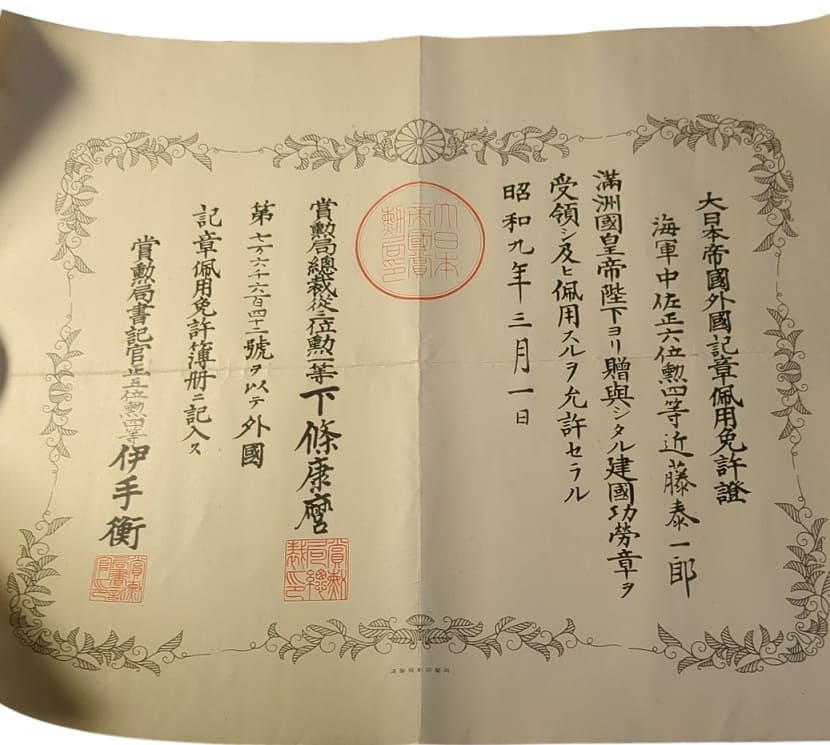 大日本帝國外國記章佩用免許證
海軍中佐正六位勲四等近藤泰一郎
滿洲國皇帝陛下ヨリ贈與シタル建國功勞章ヲ
受領シ及ヒ佩用スルヲ允許セラル
昭和九年三月一日
大日本帝國賞勲局印
賞勲局總裁從三位勲一等下條康麿
賞勲局總裁之印
第七万六千六百四十二號ヲ以テ外國
記章佩用免許簿册ニ記入ス
賞勲局書記官正五位勲四等伊手衡